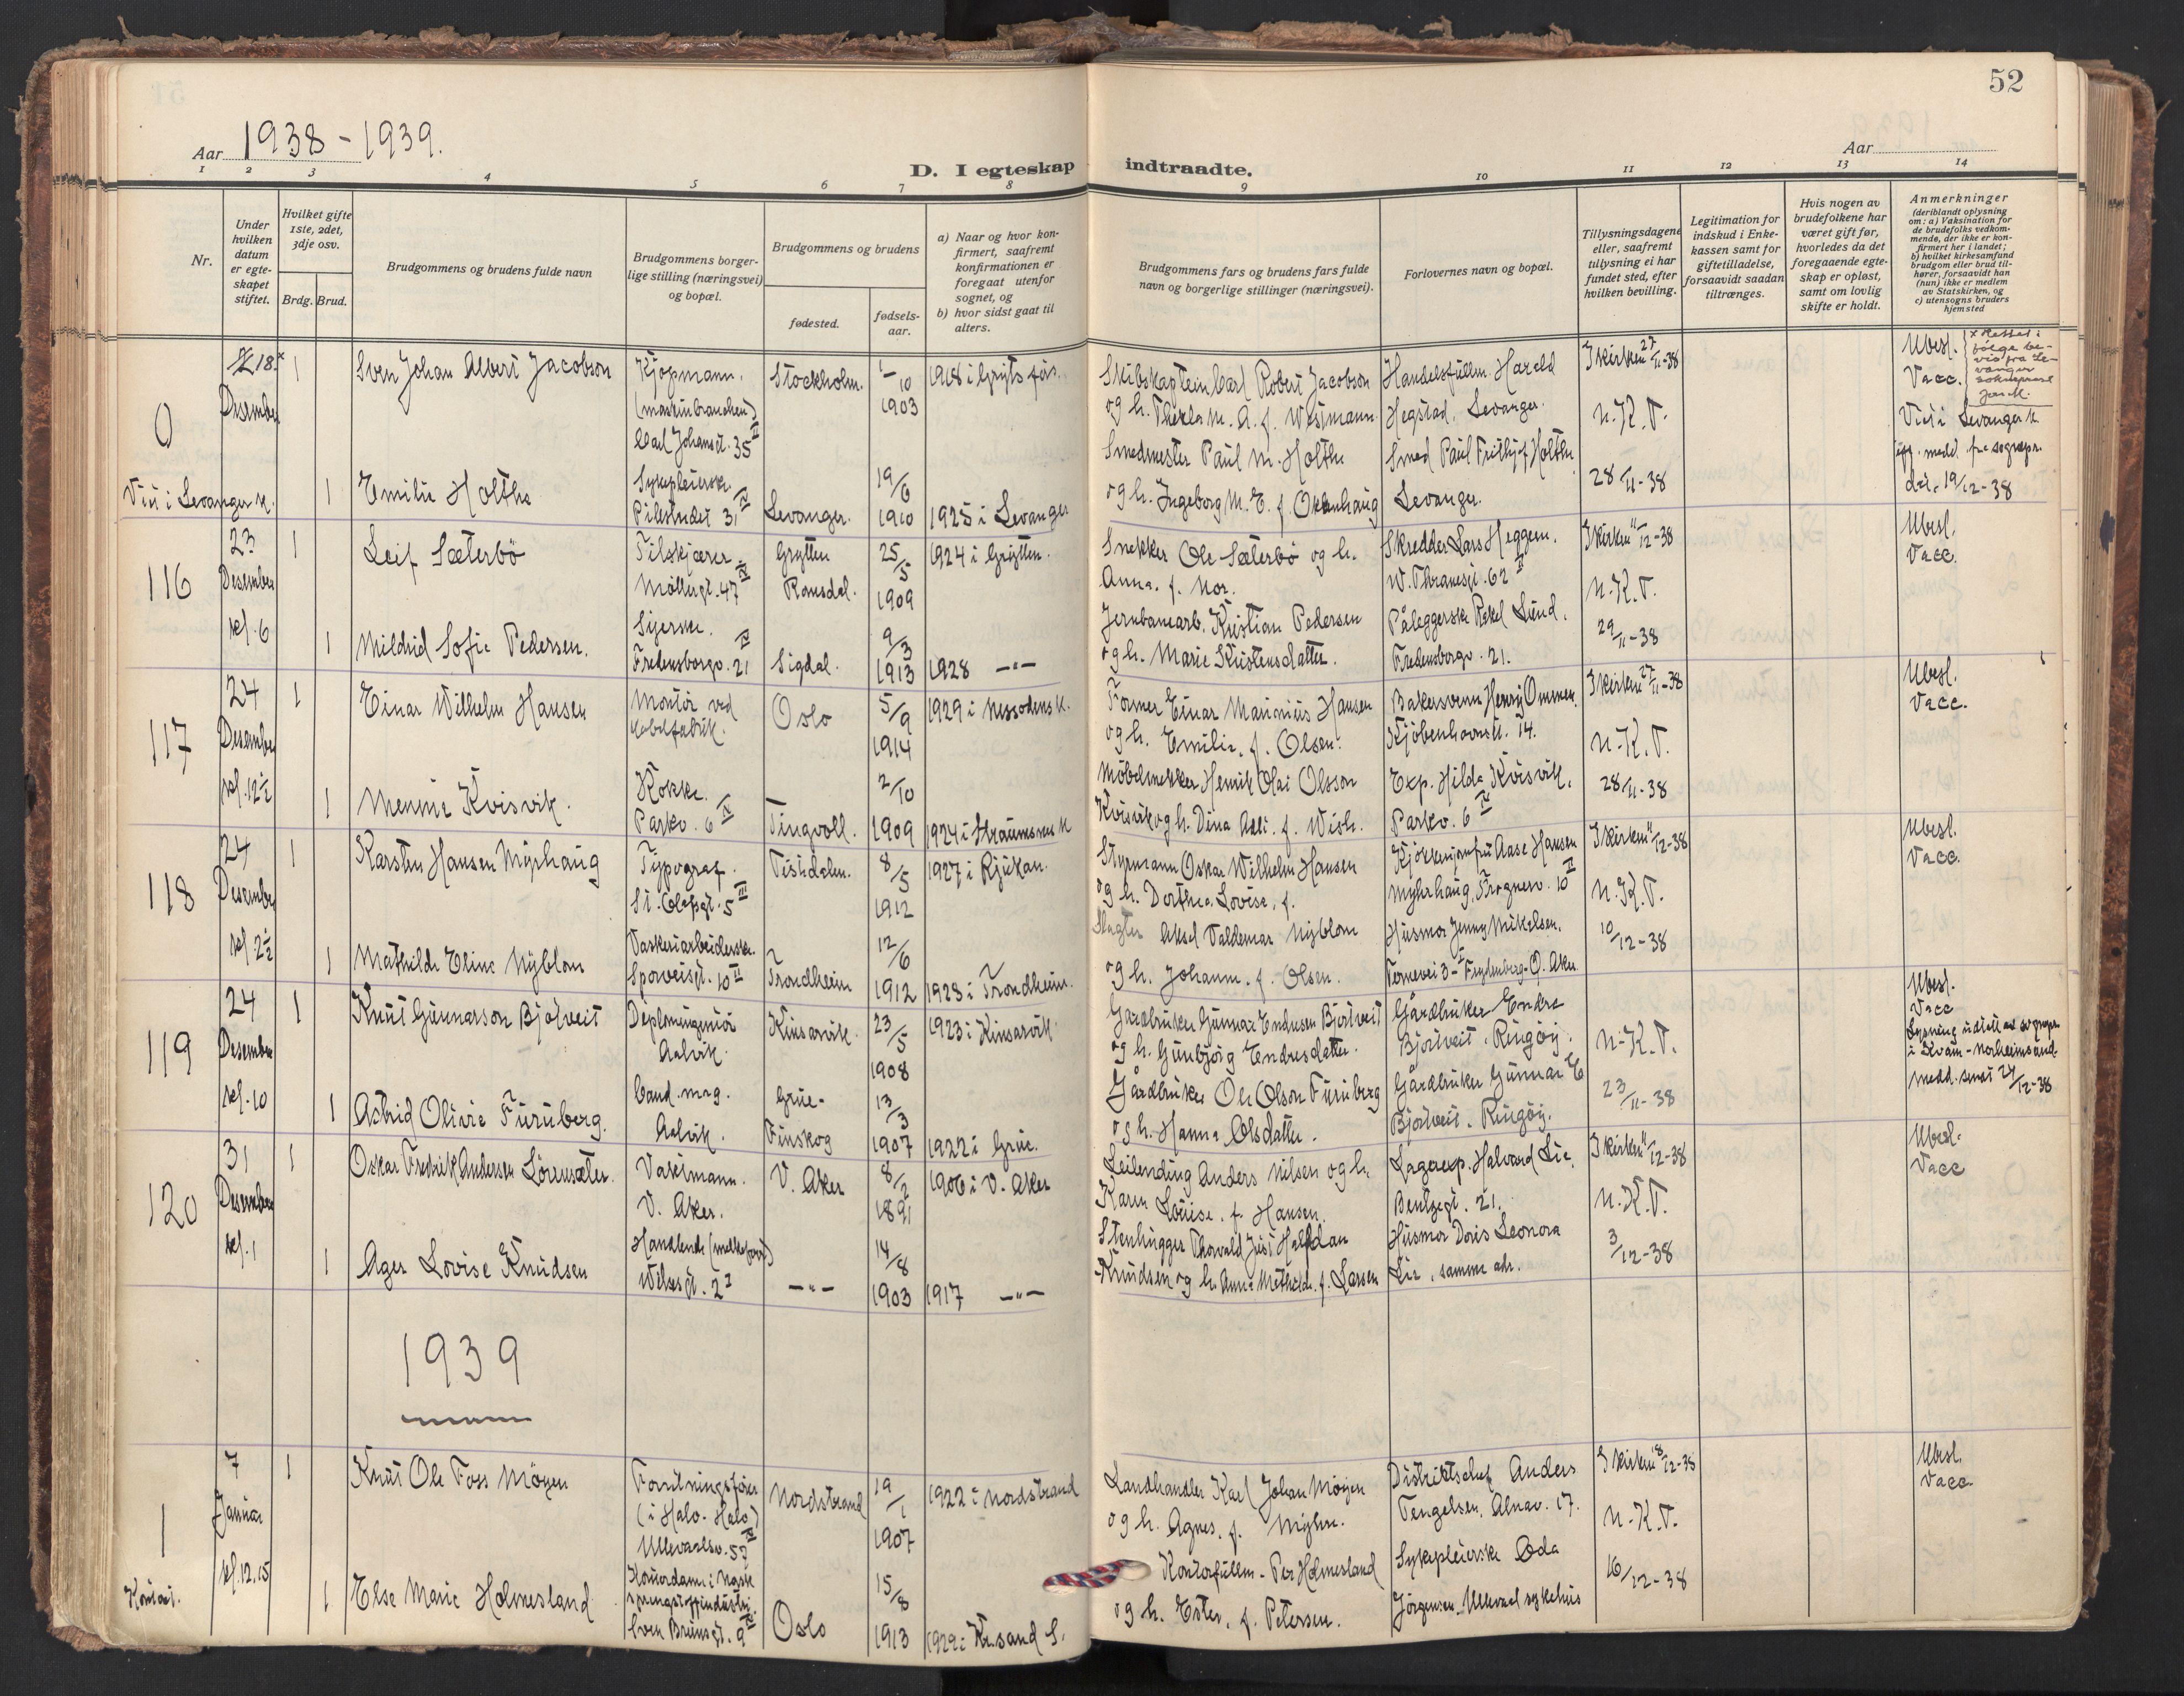 52
Aar 1938-1939.
Aar
D. I egteskap indtraadte.
1 2 3 4 5 6 7 8 9 10 11 12 13 14
Nr.
Under hvilken datum er egteskapet stiftet.
Hvilket gifte 1ste, 2det, 3dje osv.
Brdg. Brud.
Brudgommens og brudens fulde navn
Brudgommens borgerlige stilling (næringsvei) og bopæl.
Brudgommens og brudens
fødested.
fødselsaar.
a) Naar og hvor konfirmert, saafremt konfirmationen er foregaat utenfor sognet, og
b) hvor sidst gaat til alters.
Brudgommens fars og brudens fars fulde navn og borgerlige stillinger (næringsvei).
Forlovernes navn og bopæl.
Tillysningsdagene eller, saafremt tillysning ei har fundet sted, efter hvilken bevilling.
Legitimation for indskud i Enkekassen samt for giftetilladelse, forsaavidt saadan tiltrænges.
Hvis nogen av brudefolkene har været gift før, hvorledes da det foregaaende egteskap er opløst, samt om lovlig skifte er holdt.
Anmerkninger
(deriblandt oplysning om: a) Vaksination for de brudefolks vedkommende, der ikke er konfirmert her i landet; b) hvilket kirkesamfund brudgom eller brud tilhører, forsaavidt han (hun) ikke er medlem av Statskirken, og c) utensogns bruders hjemsted
0
18.x
Desember
1
Sven Johan Albert Jacobson
Kjöpmann.
(maskinbranchen)
Carl Johansgt. 35 II
Stockholm.
1/10 1903
1918 i Gryts
Skibskaptein Carl Robert Jacobson
og h. Thekla M. A. f. Westmann.
Handelsfullm. Harald
Hegstad, Levanger.
I kirken 27/11-38
N.K.T.
Ubesl.
Vacc.
Viet i Levanger k.
19/12-38
Viet i Levanger k.
1
Emilie Holthe
Sykepleierske.
Pilestredet 31 IV
Levanger.
19/6 1910
1925 i Levanger
Smedmester Paul M. Holthe
og h. Ingeborg M. E. f. Okkenhaug
Smed Paul Fridtjof Holthe
Levanger.
28/11-38
116
23
Desember
kl. 6
1
Leif Sæterbö
Filskjærer.
Möllergt. 47 IV
Grytten
Romsdal.
25/5 1909
1924 i Grytten.
Snekker Ole Sæterbö og h.
Anna. f. Mor.
Skredder Lars Heggem.
W. Thranesgt. 62 II
I kirken 11/12-38
N.K.T.
Ubesl.
Vacc.
1
Mildrid Sofie Pedersen.
Syerske.
Fredensborgv. 21 IV
Sigdal.
9/3 1913
1928 -"-
Jernbanearb. Kristian Pedersen
og h. Marie Kristensdatter.
Påleggerske Rakel Lund.
Fredensborgv. 21.
29/11-38
117
24
Desember
kl. 12½
1
Einar Wilhelm Hansen
Montör ved
kabelfabrik.
Oslo
5/9 1914
1929 i Nessodens k.
Former Einar Marinius Hansen
og h. Emilie, f. Olsen.
Bakersvenn Henry Ommen.
Kjöbenhavnsgt. 14.
I kirken 27/11-38
N.K.T.
Ubesl.
Vacc.
1
Mennie Kvisvik.
Kokke.
Parkv. 6 IV
Tingvoll.
2/10 1909
1924 i Straumsnes k
Möbelsnekker Henrik Olai Olsson
Kvisvik og h. Dina f.
Exp. Hilda Kvisvik.
Parkv. 6 IV
28/11-38
118
24
Desember
kl. 2½
1
Karsten Hansen Myrhaug
Typograf.
St. Olafsgt. 5 III
Vestdalen.
8/5 1912
1927 i Rjukan.
Styrmann Oskar Wilhelm Hansen
og h. Dorthea Lovise, f.
Kjökkenjomfru Aase Hansen
Myhrhaug, Frognerv. 10 II
I kirken 11/12-38
N.K.T.
Ubesl.
Vacc.
1
Mathilde Eline Nyblom
Vaskeriarbeiderske.
Sporveisgt. 10 II
Trondheim
12/6 1912
1928 i Trondheim.
Slagter Aksel Valdemar Nyblom
og h. Johanna. f. Olsen.
Husmor Jenny Mikelsen.
Ternevei 3 - Frydenberg - Ö. Aker
10/12-38
119
24
Desember
kl. 10
1
Knut Gunnarson Bjotveit
Diplomingeniör
Aalvik.
Kinsarvik.
23/5 1908
1923 i Kinsarvik
Gårdbruker Gunnar Endresen Bjotveit
og h. Gunbjörg Endresdatter.
Gårdbruker Endre
Bjotveit, Ringöy.
N.K.T.
Ubesl.
Vacc
Lysning utstedt av sognepr.
i Kvam - Norheimsund.
medd. sendt 24/12-38
1
Astrid Olivie Furuberg.
Cand. mag.
Aalvik.
Grue-
Finskog
13/3 1907
1922 i Grue.
Gårdbruker Ole Olson Furuberg
og h. Hanna Olsdatter.
Gårdbruker Gunnar E
Bjotveit, Ringöy.
23/11-38
120
31
Desember
kl. 1
1
Oskar Fredrik Andersen Lörensæter.
Vaktmann.
V. Aker.
V. Aker
8/2 1891
1906 i V. Aker
Leilending Anders Nilsen og h.
Karen Louise. f. Hansen.
Lagerexp. Halvard Lie.
Bentsegt. 21.
I kirken 11/12-38
N.K.T.
Ubesl.
Vacc
1
Ager Lovise Knudsen
Handlende (melkeforr.)
Wilsesgt. 2 I
-"-
14/8 1903
1917 -"-
Stenhugger Thorvald Just Halfdan
Knudsen og h. Anna Mathilde. f. Larsen
Husmor Doris Leonora
Lie, samme adr.
3/12-38
1939
1
7
Januar
kl. 12.15
Kontor.
1
Knut Ole Foss Möyen
Forretningsförer
(i Halv. Halv)
Ullevaalsv. 57 IV
Nordstrand
19/1 1907
1922 i Nordstrand
Landhandler Karl Johan Möyen
og h. Agnes, f. Myhre.
Distriktschef Anders
Tengelsen, Alnav. 17.
I kirken 18/12-38
N.K.T.
Ubesl.
Vacc.
1
Else Marie Holmesland
Kontordame i Norsk
sprengstoffindustri.
Sven Brunsgt. 9 IV
Oslo
15/8 1913
1929 i Kr.sand S.
Kontorfullm. Per Holmesland
og h. Ester, f. Petersen.
Sykepleierske Oda
Jörgensen, Ullevaal sykehus
16/12-38